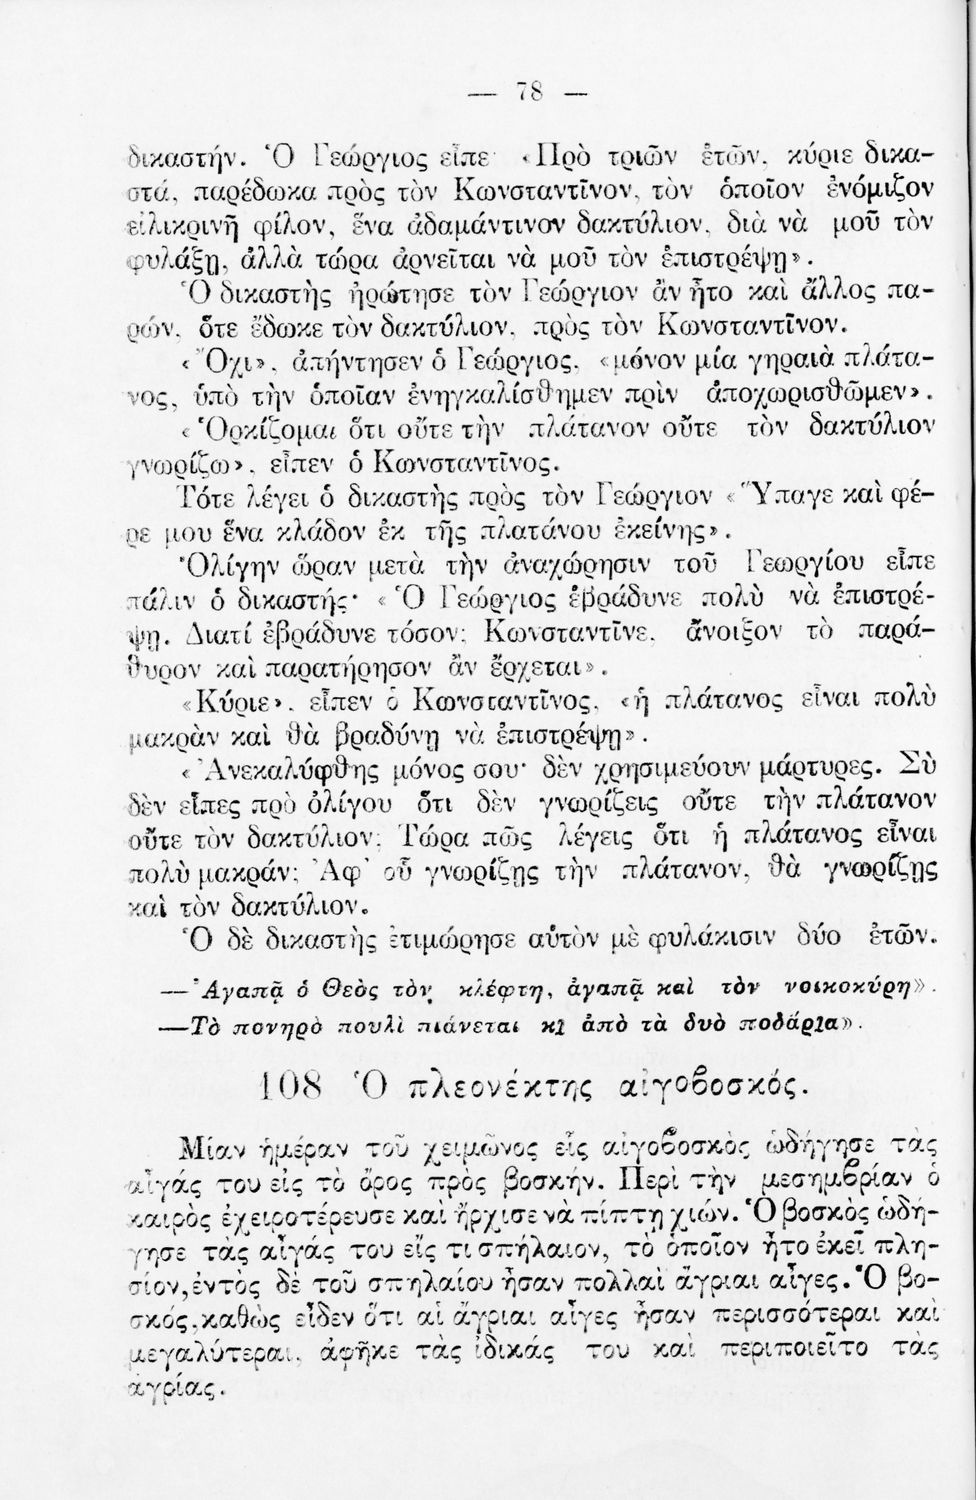 — 78 —
δικαστήν. Ὁ Γεώργιος εἶπε· «Πρὸ τριῶν ἐτῶν, κύριε δικα-
στά, παρέδωκα πρὸς τὸν Κωνσταντῖνον, τὸν ὁποῖον ἐνόμιζον
εἰλικρινῆ φίλον, ἕνα ἀδαμάντινον δακτύλιον, διὰ νὰ μοῦ τὸν
φυλάξῃ, ἀλλὰ τώρα ἀρνεῖται νὰ μοῦ τὸν ἐπιστρέψῃ».
Ὁ δικαστὴς ἠρώτησε τὸν Γεώργιον ἂν ἦτο καὶ ἄλλος πα-
ρών, ὅτε ἔδωκε τὸν δακτύλιον, πρὸς τὸν Κωνσταντῖνον.
«Ὄχι», ἀπήντησεν ὁ Γεώργιος, «μόνον μία γηραιὰ πλάτα-
νος, ὑπὸ τὴν ὁποῖαν ἐνηγκαλίσθημεν πρὶν ἀποχωρισθῶμεν».
«Ὁρκίζομαι ὅτι οὔτε τὴν πλάτανον οὔτε τὸν δακτύλιον
γνωρίζω», εἶπεν ὁ Κωνσταντῖνος.
Τότε λέγει ὁ δικαστὴς πρὸς τὸν Γεώργιον «Ὕπαγε καὶ φέ-
ρε μου ἕνα κλάδον ἐκ τῆς πλατάνου ἐκείνης».
Ὀλίγην ὥραν μετὰ τὴν ἀναχώρησιν τοῦ Γεωργίου εἶπε
πάλιν ὁ δικαστής· «Ὁ Γεώργιος ἐβράδυνε πολὺ νὰ ἐπιστρέ-
ψῃ. Διατί ἐβράδυνε τόσον; Κωνσταντῖνε, ἄνοιξον τὸ παρά-
θυρον καὶ παρατήρησον ἂν ἔρχεται».
«Κύριε», εἶπεν ὁ Κωνσταντῖνος, «ἡ πλάτανος εἶναι πολὺ
μακρὰν καὶ θὰ βραδύνῃ νὰ ἐπιστρέψῃ».
«Ἀνεκαλύφθης μόνος σου· δὲν χρησιμεύουν μάρτυρες. Σὺ
δὲν εἶπες πρὸ ὀλίγου ὅτι δὲν γνωρίζεις οὔτε τὴν πλάτανον
οὔτε τὸν δακτύλιον; Τώρα πῶς λέγεις ὅτι ἡ πλάτανος εἶναι
πολὺ μακράν; Ἀφ' οὗ γνωρίζῃς τὴν πλάτανον, θὰ γνωρίζῃς
καὶ τὸν δακτύλιον.
Ὁ δὲ δικαστὴς ἐτιμώρησε αὐτὸν μὲ φυλάκισιν δύο ἐτῶν.
—Ἀγαπᾷ ὁ Θεὸς τὸν κλέφτη, ἀγαπᾷ καὶ τὸν νοικοκύρη».
—Τὸ πονηρὸ πουλὶ πιάνεται κι ἀπὸ τὰ δυὸ ποδάρια».
108 Ὁ πλεονέκτης αἰγοβοσκός.
Μίαν ἡμέραν τοῦ χειμῶνος εἷς αἰγοβοσκὸς ὡδήγησε τὰς
αἶγάς του εἰς τὸ ὄρος πρὸς βοσκήν. Περὶ τὴν μεσημβρίαν ὁ
καιρὸς ἐχειροτέρευσε καὶ ἤρχισε νὰ πίπτῃ χιών. Ὁ βοσκὸς ὡδή-
γησε τὰς αἶγάς του εἴς τι σπήλαιον, τὸ ὁποῖον ἦτο ἐκεῖ πλη-
σίον, ἐντὸς δὲ τοῦ σπηλαίου ἦσαν πολλαὶ ἄγριαι αἶγες. Ὁ βο-
σκός, καθὼς εἶδεν ὅτι αἱ ἄγριαι αἶγες ἦσαν περισσότεραι καὶ
μεγαλύτεραι, ἀφῆκε τὰς ἰδικάς του καὶ περιποιεῖτο τὰς
ἀγρίας.